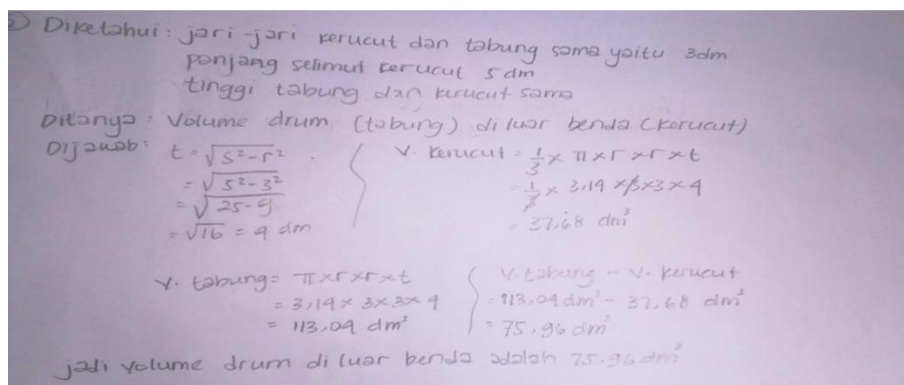 2) Diketahui : jari-jari kerucut dan tabung sama yaitu 3dm
panjang selimut kerucut 5 dm
tinggi tabung dan kerucut sama
Ditanya : Volume drum (tabung) di luar benda (kerucut)
Dijawab : t = √s²-r²
= √5²-3²
= √25-9
= √16 = 4 dm
V. kerucut = 1/3 × π × r × r × t
= 1/3 × 3,14 × 3 × 3 × 4
= 37,68 dm³
V. tabung = π × r × r × t
= 3,14 × 3 × 3 × 4
= 113,04 dm³
V. tabung - V. kerucut
= 113,04 dm³ - 37,68 dm³
= 75,36 dm³
jadi volume drum di luar benda adalah 75,36 dm³